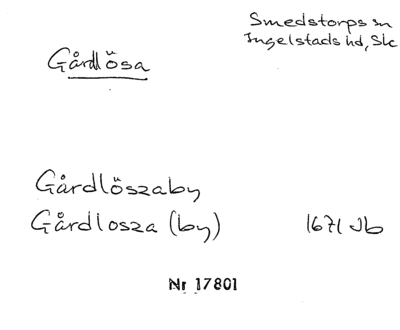 Smedstorps sn
Ingelstads hd, Sk
Gårdlösa
Gårdlöszaby
Gårdlosza (by) 1671 Jb
Nr 17801